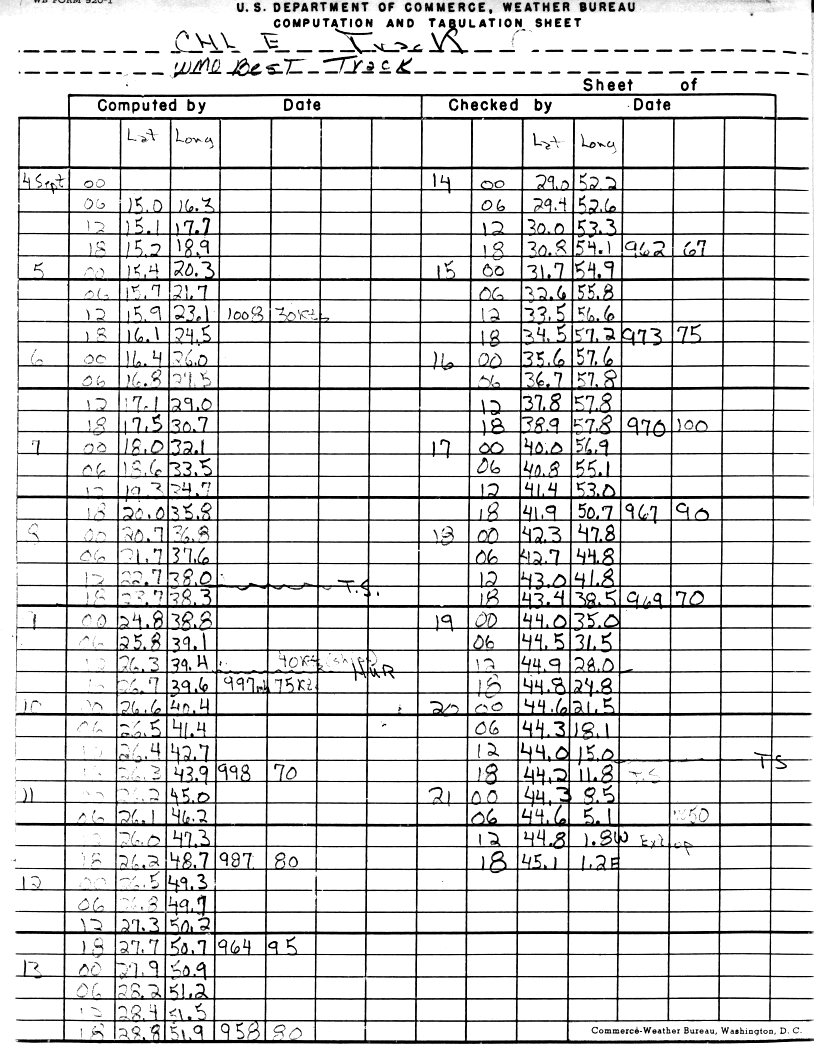 WB FORM 520-1
U. S. DEPARTMENT OF COMMERCE, WEATHER BUREAU
COMPUTATION AND TABULATION SHEET
Track
WMO Best Track
Sheet of
Computed by Date Checked by Date
Lat Long Lat Long
4 Sept 00 14 00 29.0 52.2
06 15.0 16.3 06 29.4 52.6
12 15.1 17.7 12 30.0 53.3
18 15.2 18.9 18 30.8 54.1 962 67
5 00 15.4 20.3 15 00 31.7 54.9
06 15.7 21.7 06 32.6 55.8
12 15.9 23.1 1008 30Kts 12 33.5 56.6
18 16.1 24.5 18 34.5 57.2 973 75
6 00 16.4 26.0 16 00 35.6 57.6
06 16.8 27.5 06 36.7 57.8
12 17.1 29.0 12 37.8 57.8
18 17.5 30.7 18 38.9 57.8 970 100
7 00 18.0 32.1 17 00 40.0 56.9
06 18.6 33.5 06 40.8 55.1
12 19.3 34.7 12 41.4 53.0
18 20.0 35.8 18 41.9 50.7 967 90
8 00 20.7 36.8 18 00 42.3 47.8
06 21.7 37.6 06 42.7 44.8
12 22.7 38.0 T.S. 12 43.0 41.8
18 23.7 38.3 18 43.4 38.5 969 70
00 24.8 38.8 19 00 44.0 35.0
06 25.8 39.1 06 44.5 31.5
12 26.3 39.4 40Kts (ship) HUR 12 44.9 28.0
26.7 39.6 997mb 75Kts 18 44.8 24.8
10 00 26.6 40.4 20 00 44.6 21.5
06 26.5 41.4 06 44.3 18.1
26.4 42.7 12 44.0 15.0 TS
26.3 43.9 998 70 18 44.2 11.8 TS
11 00 26.2 45.0 21 00 44.3 8.5
06 26.1 46.2 06 44.6 5.1 50
26.0 47.3 12 44.8 1.8W
18 26.2 48.7 987 80 18 45.1 1.2E
12 00 26.5 49.3
06 26.8 49.7
12 27.3 50.2
18 27.7 50.7 964 95
13 00 27.9 50.9
06 28.2 51.2
12 28.4 51.5
18 28.8 51.9 958 80
Commerce-Weather Bureau, Washington, D. C.